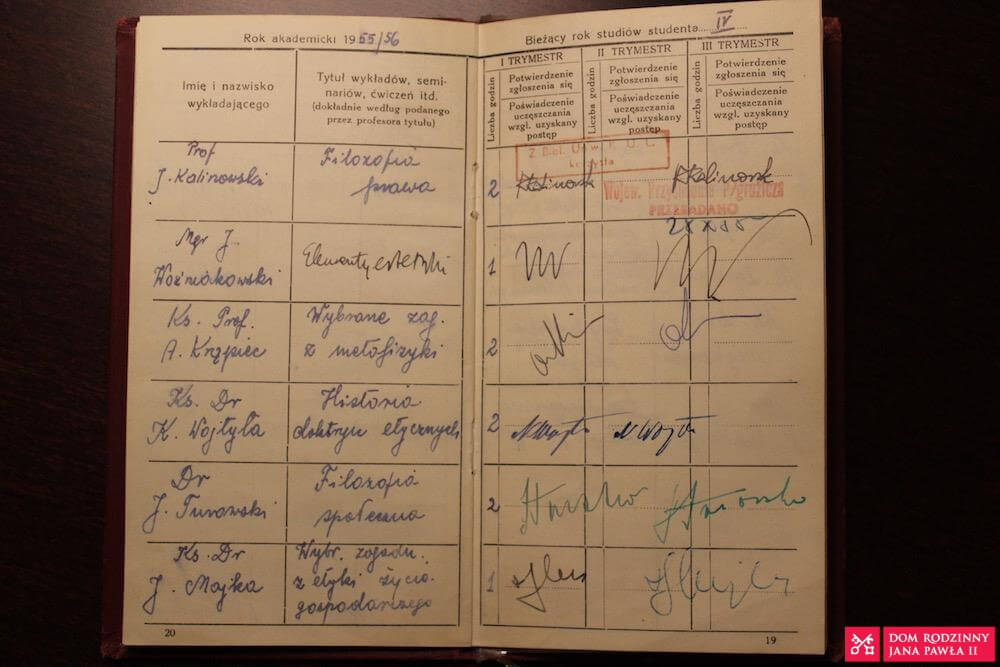 Rok akademicki 1955/56
Imię i nazwisko
wykładającego
Tytuł wykładów, semi-
nariów, ćwiczeń itd.
(dokładnie według podanego
przez profesora tytułu)
Prof
J. Kalinowski
Filozofia
prawa
Mgr J.
Woźniakowski
Elementy estetyki
Ks. Prof.
A. Krąpiec
Wybrane zag.
z metafizyki
Ks. Dr
K. Wojtyła
Historia
doktryn etycznych
Dr
J. Turowski
Filozofia
społeczna
Ks. Dr
J. Majka
Wybr. zagadn.
z etyki życia
gospodarczego
20
Bieżący rok studiów studenta IV
I TRYMESTR
II TRYMESTR
III TRYMESTR
Liczba godzin
Potwierdzenie
zgłoszenia się
Poświadczenie
uczęszczania
wzgl. uzyskany
postęp
Liczba godzin
Potwierdzenie
zgłoszenia się
Poświadczenie
uczęszczania
wzgl. uzyskany
postęp
Liczba godzin
Potwierdzenie
zgłoszenia się
Poświadczenie
uczęszczania
wzgl. uzyskany
postęp
Z Bibl. Uniw. K. U. L.
korzysta
2
Kalinowsk
Kalinowsk
Wojew. Przychodnia P/gruźlicza
PRZEBADANO
1
2
2
2
1
19
DOM RODZINNY
JANA PAWŁA II